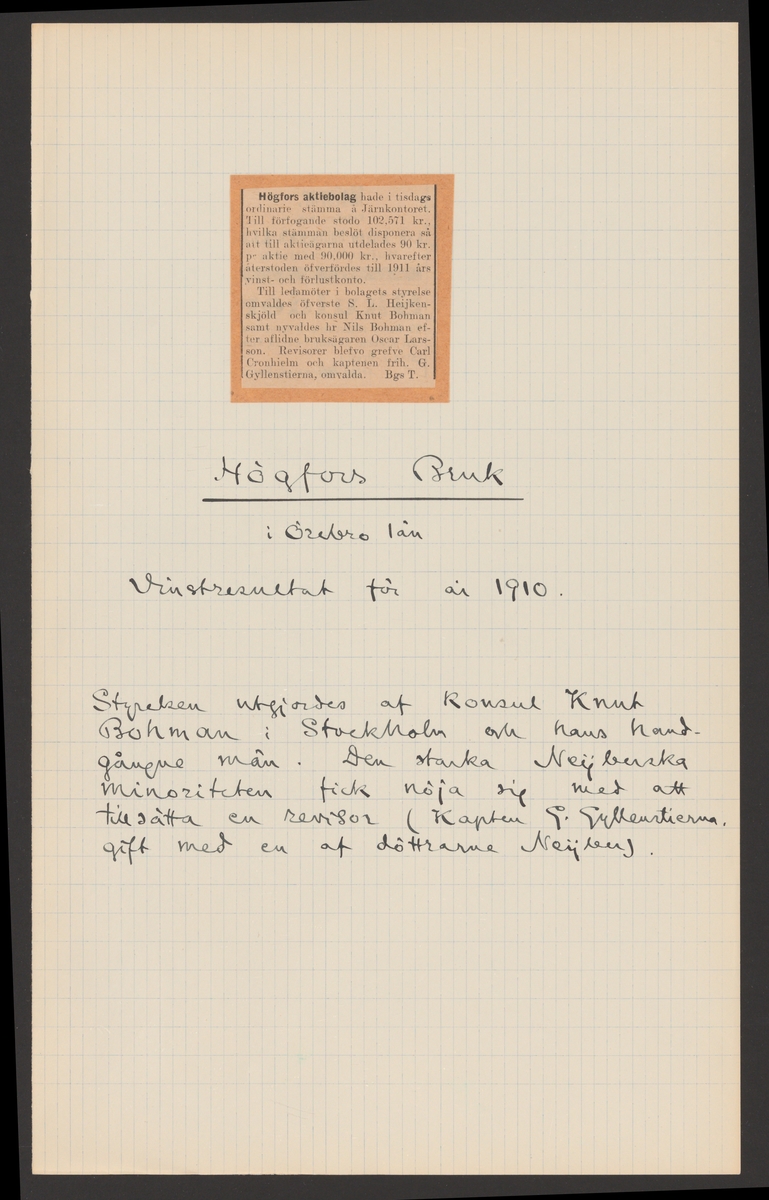 Högfors aktiebolag hade i tisdags
ordinarie stämma å Järnkontoret.
Till förfogande stodo 102,571 kr.,
hvilka stämman beslöt disponera så
att till aktieägarna utdelades 90 kr.
pr aktie med 90,000 kr., hvarefter
återstoden öfverfördes till 1911 års
vinst- och förlustkonto.
Till ledamöter i bolagets styrelse
omvaldes öfverste S. L. Heijken-
skjöld och konsul Knut Bohman
samt nyvaldes hr Nils Bohman ef-
ter aflidne bruksägaren Oscar Lars-
son. Revisorer blefvo grefve Carl
Cronhielm och kaptenen frih. G.
Gyllenstierna, omvalda. Bgs T.
Högfors Bruk
i Örebro län
Vinstresultat för år 1910.
Styrelsen utgjordes af Konsul Knut
Bohman i Stockholm och hans hand-
gångne män. Den starka Neijberska
minoriteten fick nöja sig med att
tillsätta en revisor (Kapten G. Gyllenstierna,
gift med en af döttrarne Neijber).